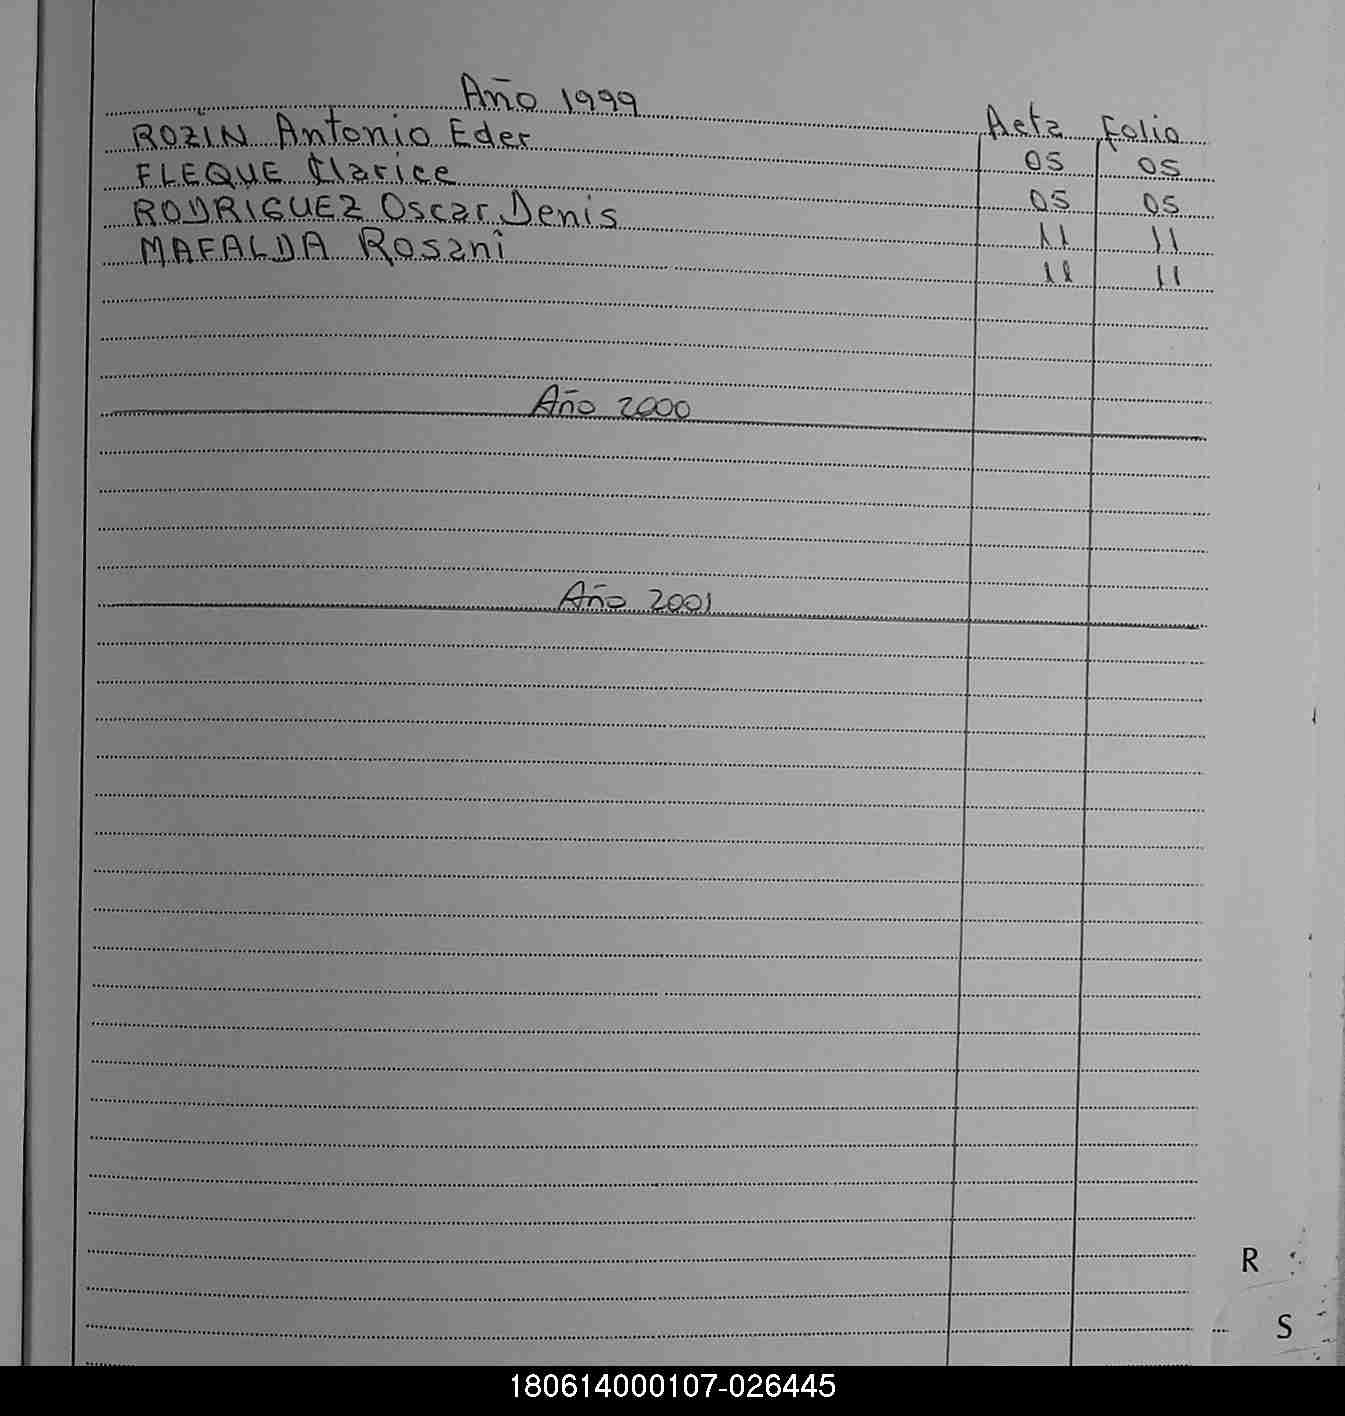 Año 1999
Acta Folio
ROZIN Antonio Eder 05 05
FLEQUE Clarice 05 05
RODRIGUEZ Oscar Denis 11 11
MAFALDA Rosani 11 11
Año 2000
Año 2001
R
S
180614000107-026445